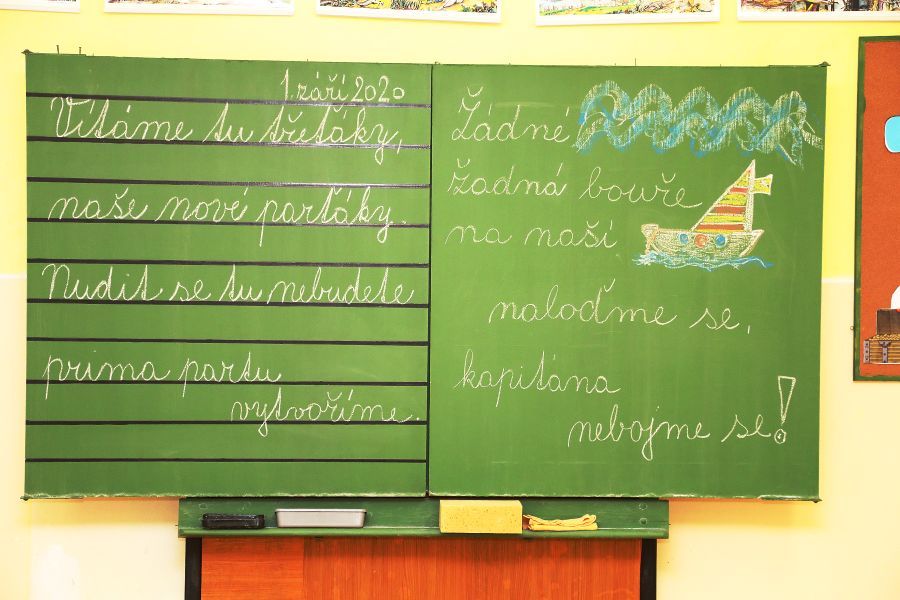 1. září 2020
Vítáme tu třeťáky,
naše nové parťáky.
Nudit se tu nebudete
prima partu
vytvoříme.
Žádné
žadná bouře
na naší
naloďme se,
kapitána
nebojme se!